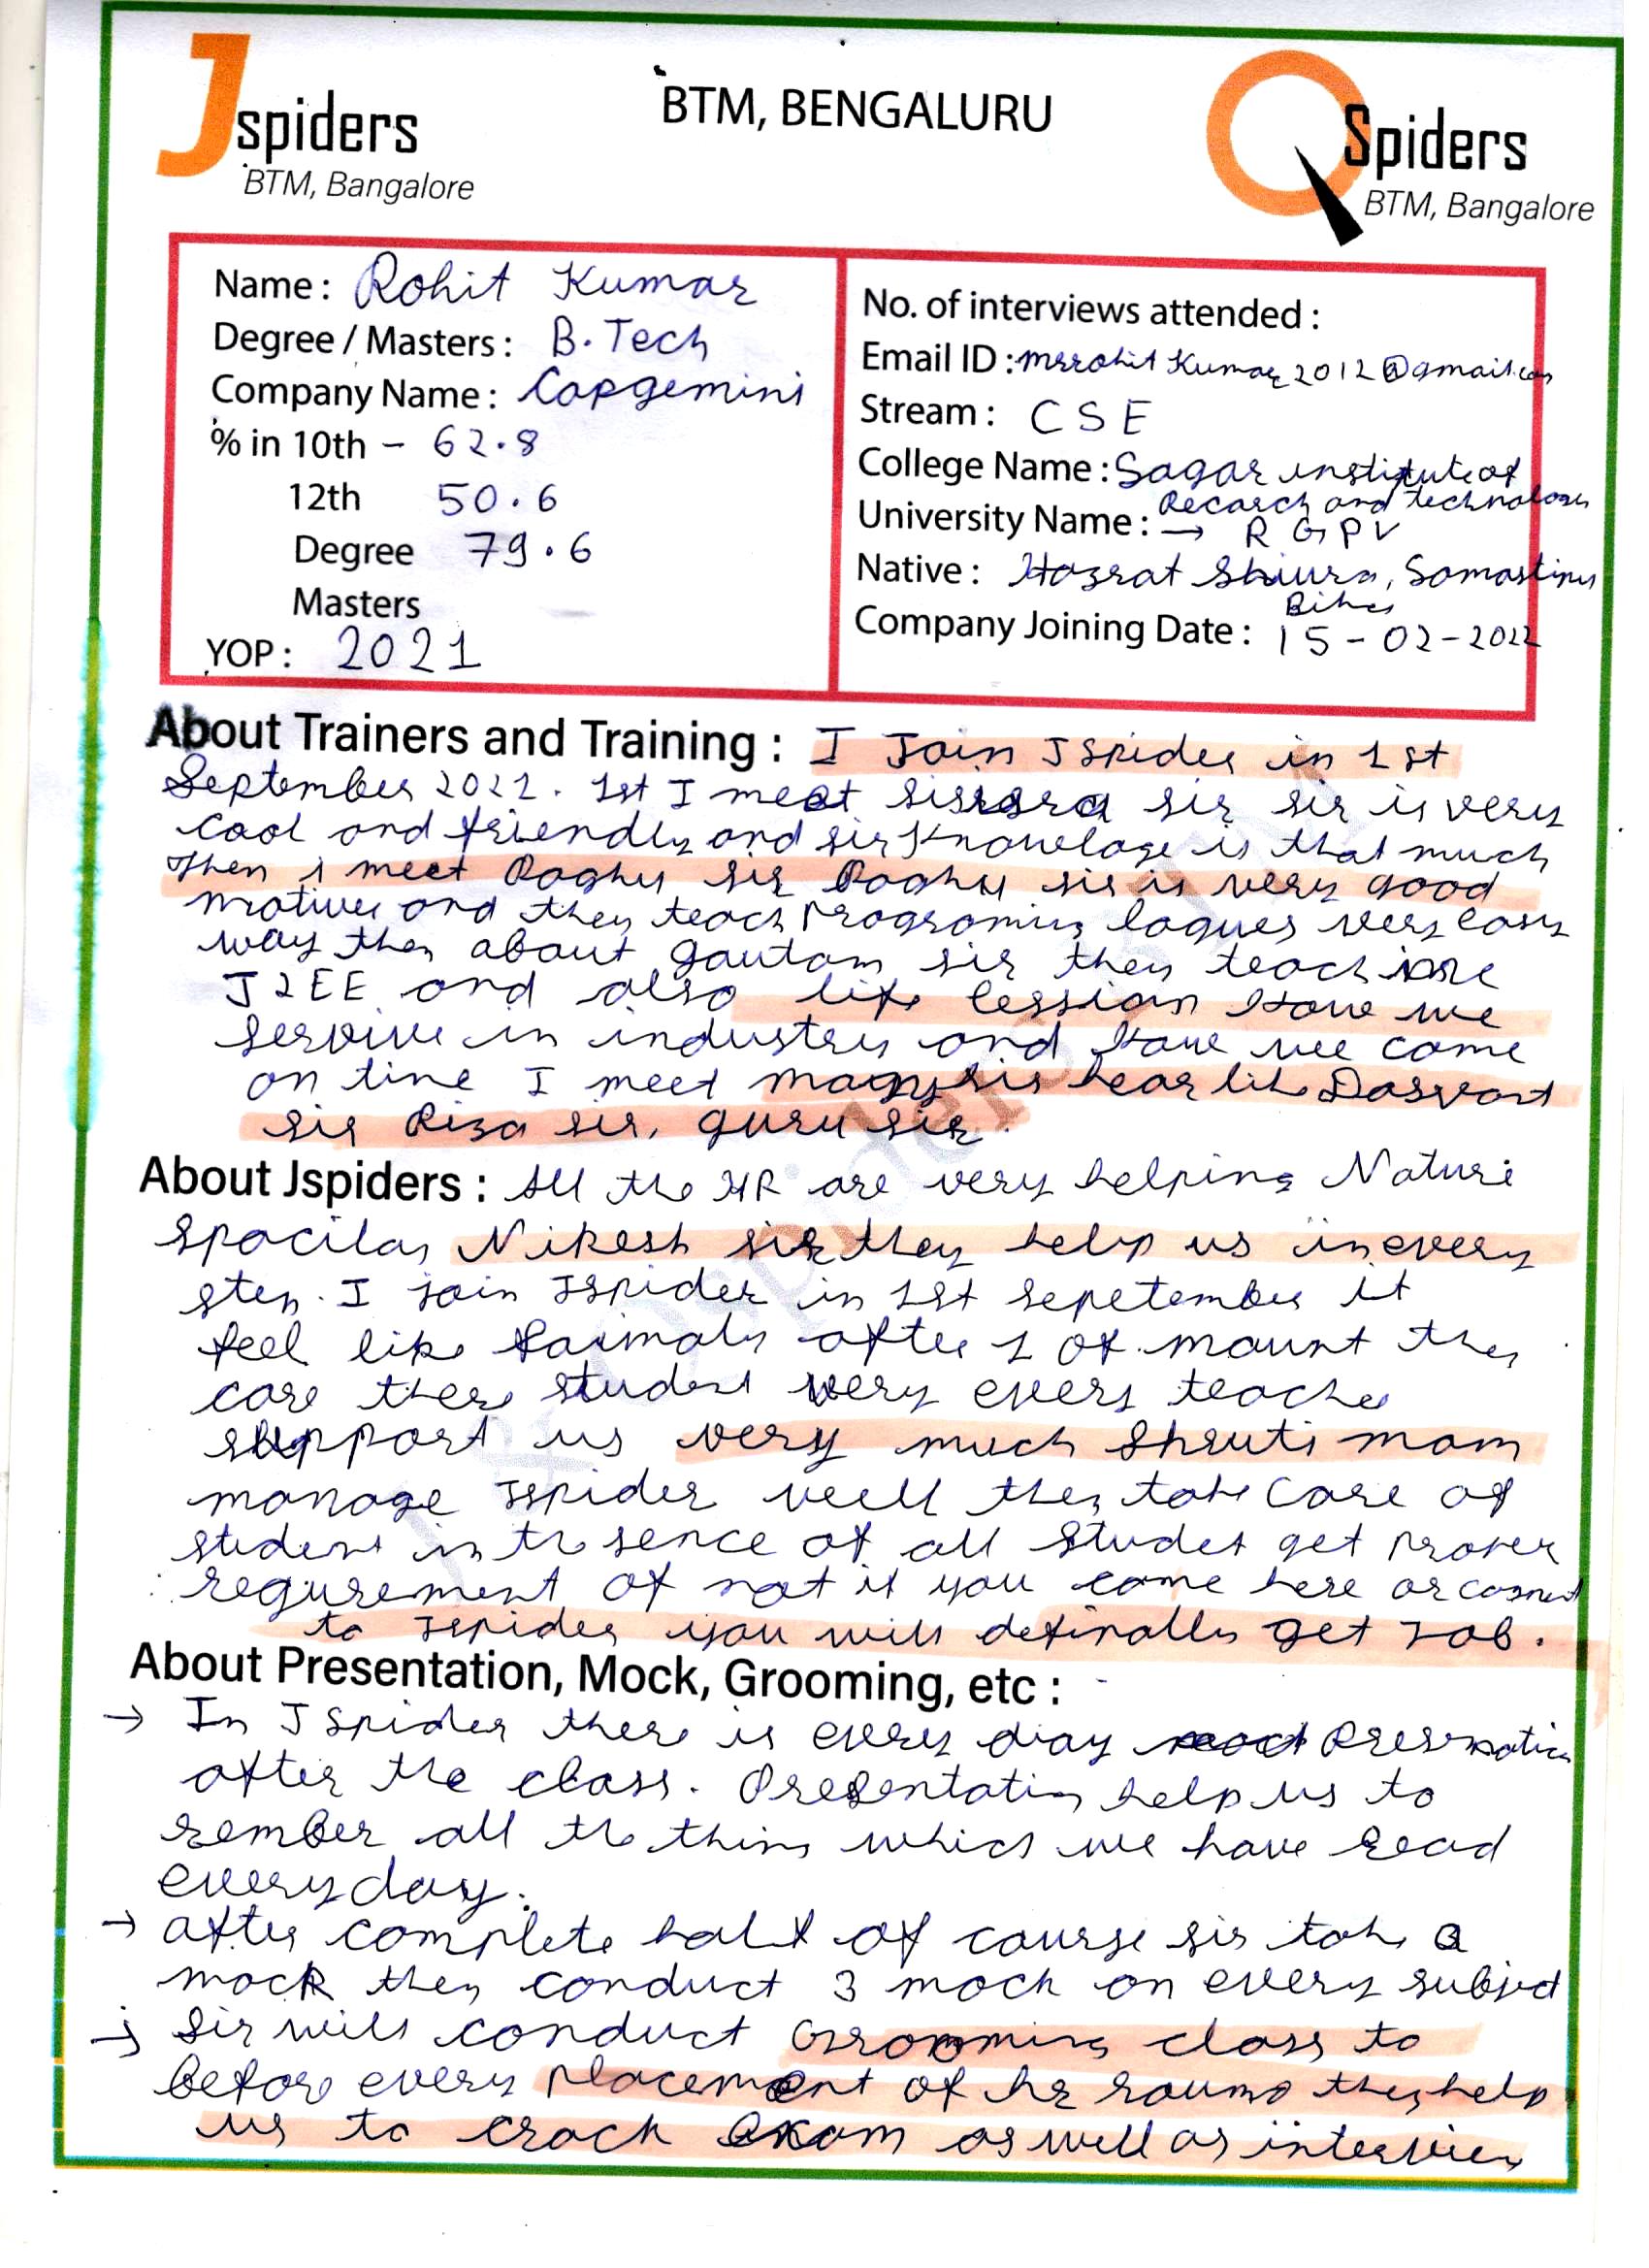 Jspiders
BTM, Bangalore
BTM, BENGALURU
QSpiders
BTM, Bangalore
Name : Rohit Kumar
Degree / Masters : B.Tech
Company Name : Capgemini
% in 10th - 62.8
12th 50.6
Degree 79.6
Masters —
YOP : 2021
No. of interviews attended :
Email ID : mrrohitkumar2012@gmail.com
Stream : CSE
College Name : Sagar institute of
Recarch and technology
University Name : → RGPV
Native : Hazrat Samastipur
Bihar
Company Joining Date : 15-02-2022
About Trainers and Training : I Join Jspider in 1st
September 2021. 1st I meet sir sir is very
cool and friendly and sir Knowelage is that much
then i meet Raghu sir Raghu sir is very good
and they teach programing very easy
way then about gautam sir they teach me
J2EE and also life lession How we
servive in industry and How we come
on time I meet many sir hear like
sir Riza sir, guru sir.
About Jspiders : All the HR are very helping Nature
Nikesh sir they help us in every
step. I join Jspider in 1st sepetember it
feel like after 1 of mount they
care there student very every teacher
support us very much Shruti mam
manage Jspider well they take care of
student in the sence of all studet get proper
regurement of not if you come here or connect
to Jspider you will definally get Job.
About Presentation, Mock, Grooming, etc :
→ In Jspider there is every day Presentation
after the class. Presentation help us to
rember all the thing which we have read
everyday.
→ after complete half of course sir take a
mock they conduct 3 mock on every subject
→ sir will conduct Grooming class to
before every placement of hr round they help
us to crack exam as well as interview